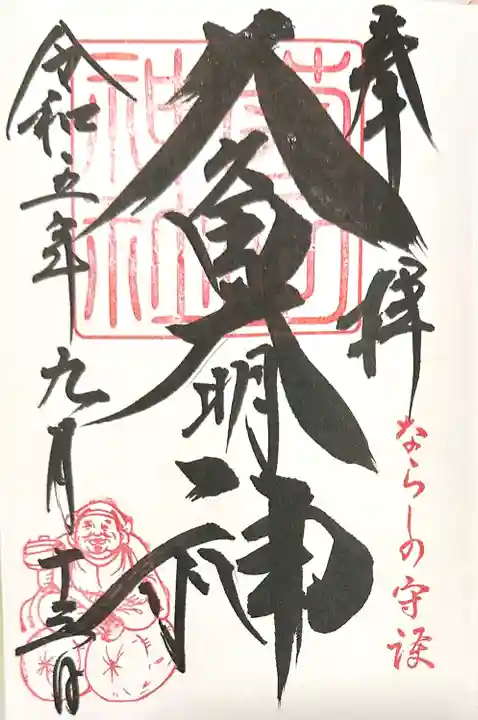 奉拝
ならしの守護
久々田大明神
神社
令和五年九月十三日